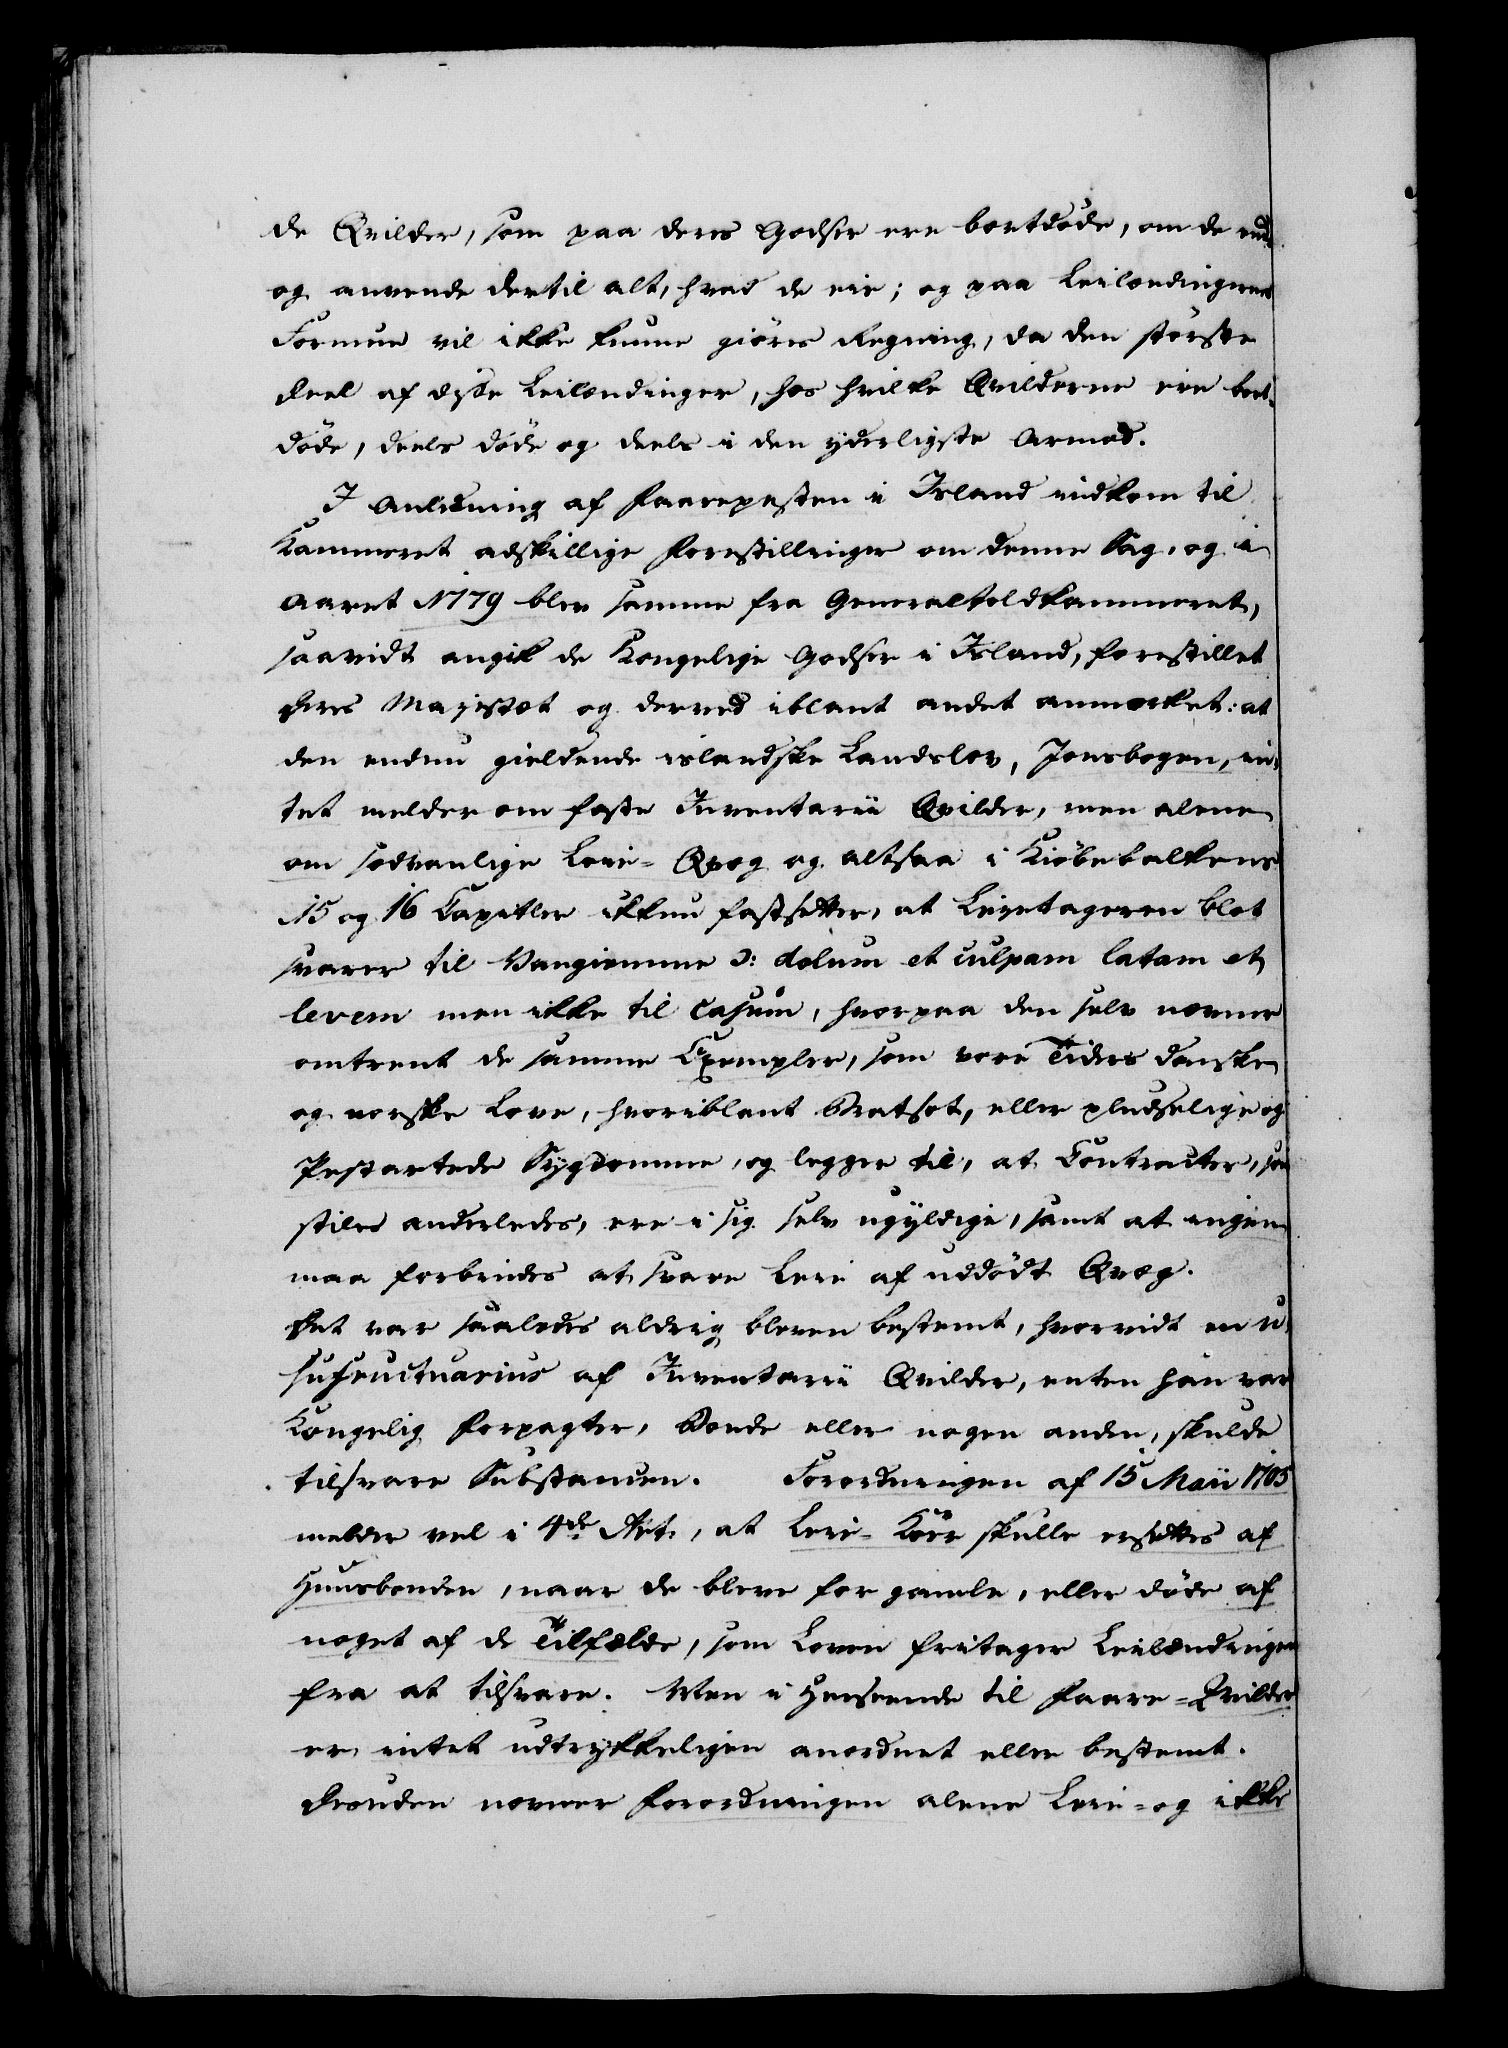 de Qvilder, som paa deres Godser ere bortdøde, om de end
og anvende dertil alt, hvad de eie; og paa Leilændingernes
Formue vil ikke kunne giøres Regning, da den største
Deel af disse Leilændinger, hos hvilke Qvilderne ere bort-
døde, deels døde og deels i den yderligste Armod.
I Anledning af Faarepesten i Island indkom til
Kammeret adskillige Forestillinger om denne Sag, og i
Aaret 1779 blev samme fra Generaltoldkammeret,
saavidt angik de Kongelige Godser i Island, forestillet
Deres Majestæt og derved iblant andet anmærket: at
den endnu gieldende islandske Landslov, Jonsbogen, in-
tet melder om faste Inventarii Qvilder, men alene
om sædvanlige Leie-Qvæg og altsaa i Kiøbebalkens
15 og 16 Capitler ikkun fastsetter, at Leietageren blot
svarer til Vangiemme ɔ: dolum et culpam latam et
levem men ikke til Casum, hvorpaa den selv nævner
omtrent de samme Exempler, som vore Tiders danske
og norske Love, hvoriblant Bratsot, eller pludselige og
Pestartede Sygdomme, og legger til, at Contracter, som
stiles anderledes, ere i sig selv ugyldige, samt at ingen
maa forbindes at svare Leie af uddødt Qvæg.
Det var saaledes aldrig bleven bestemt, hvorvidt en u-
sufructuarius af Inventarii Qvilder, enten han var
Kongelig Forpagter, Bonde eller nogen anden, skulde
tilsvare Substancen. Forordningen af 15 Maii 1705
melder vel i 4de Art., at Leie-Køer skulle ersettes af
Huusbonden, naar de bleve for gamle, eller døde af
noget af de Tilfælde, som Loven fritager Leilændingen
fra at tilsvare. Men i Henseende til Faare-Qvilder
er intet udtrykkeligen anordnet eller bestemt.
Desuden nævner Forordningen alene Leie- og ikke